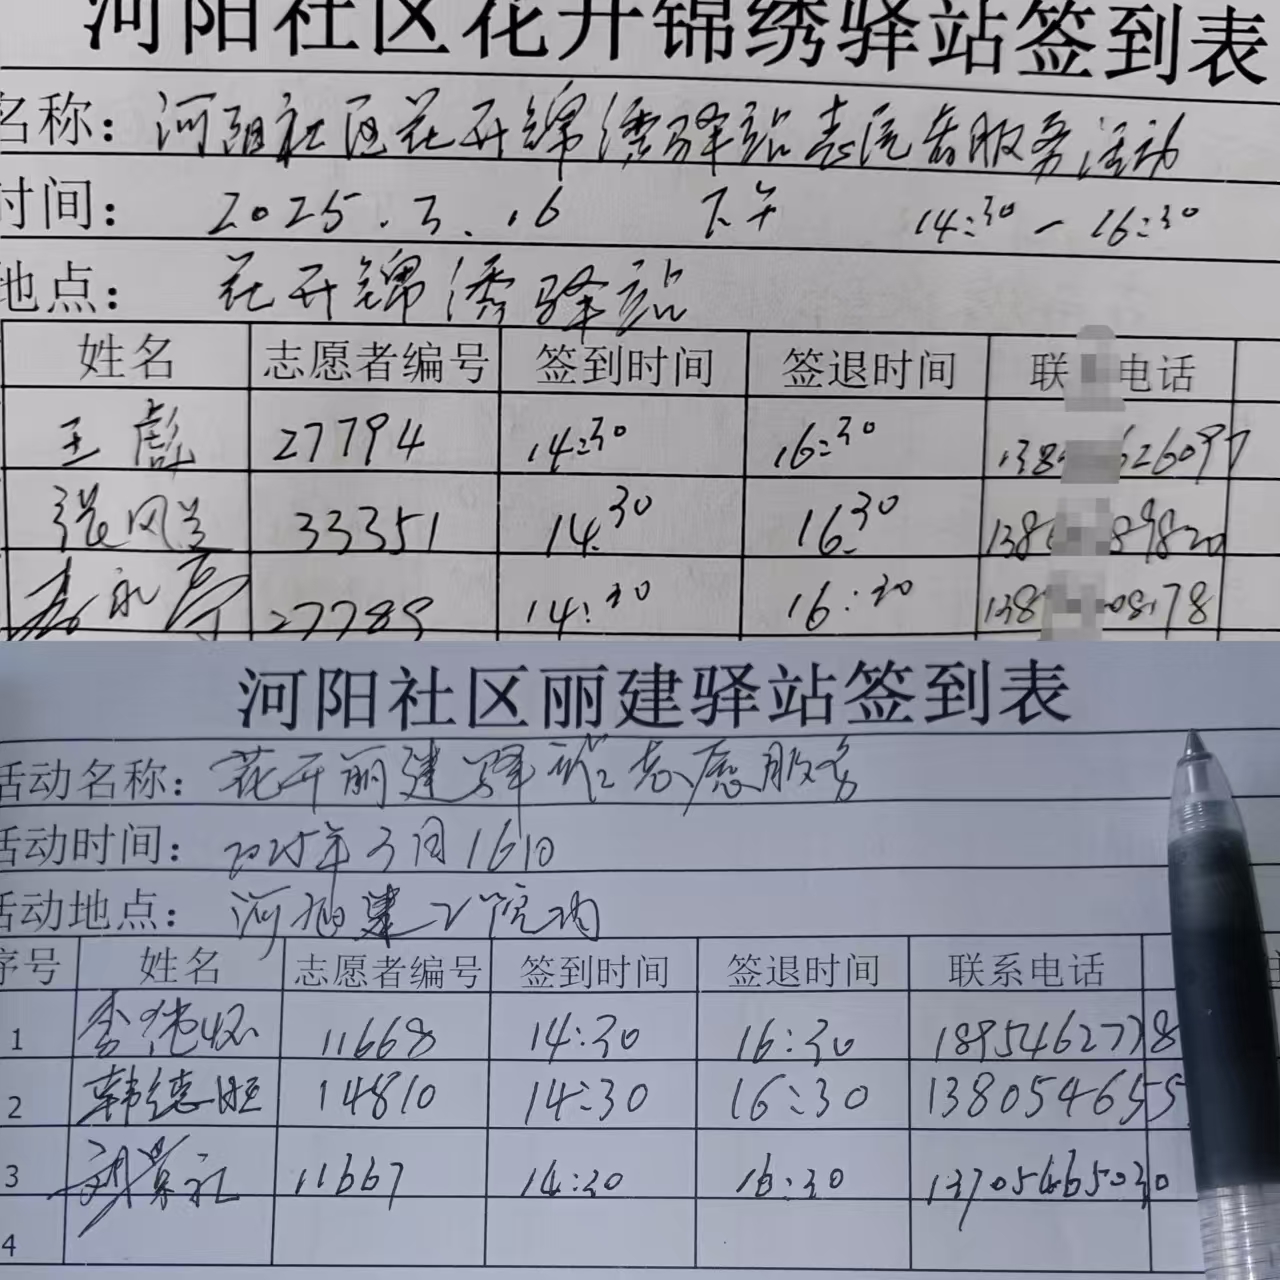 河阳社区花开锦绣驿站签到表
名称：河阳社区花开锦绣驿站志愿者服务活动
时间：2025.3.16 下午 14:30-16:30
地点：花开锦绣驿站
姓名 志愿者编号 签到时间 签退时间 联 电话
王彪 27794 14:30 16:30 138 626097
张风兰 33351 14:30 16:30 138 89820
永 27789 14:30 16:30 138 08178
河阳社区丽建驿站签到表
活动名称：花开丽建驿站志愿服务
活动时间：2025年3月16日
活动地点：河阳建工院内
序号 姓名 志愿者编号 签到时间 签退时间 联系电话
1 李德怀 11668 14:30 16:30 18954627718
2 韩德旺 14810 14:30 16:30 1380546555
3 刘景礼 11667 14:30 16:30 13705465030
4